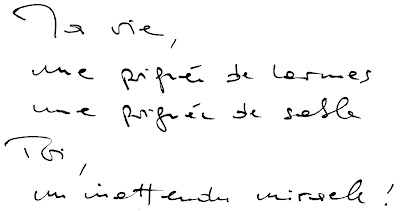 Ta vie,
une poignée de larmes
une poignée de sable
Toi,
un inattendu miracle !